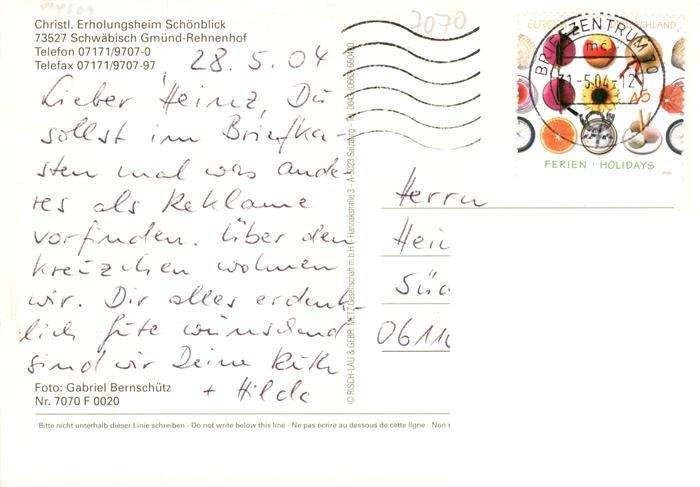 7070
Christl. Erholungsheim Schönblick
73527 Schwäbisch Gmünd-Rehnenhof
Telefon 07171/9707-0
Telefax 07171/9707-97
28.5.04
Lieber Heinz, Du
sollst im Briefka-
sten mal was ande-
res als Reklame
vorfinden. Über den
Kreuzchen wohnen
wir. Dir alles erdenk-
lich Gute wünschend
sind wir Deine Ruth
+ Hilde
Foto: Gabriel Bernschütz
Nr. 7070 F 0020
Bitte nicht unterhalb dieser Linie schreiben - Do not write below this line - Ne pas écrire au dessous de cette ligne - Non
© RISCH-LAU & GEBR. METZ Gesellschaft m.b.H.
EUROPA
DEUTSCHLAND
BRIEFZENTRUM 70
mc
-5.04-12
45
FERIEN · HOLIDAYS
Herrn
Hei
Süd
0611